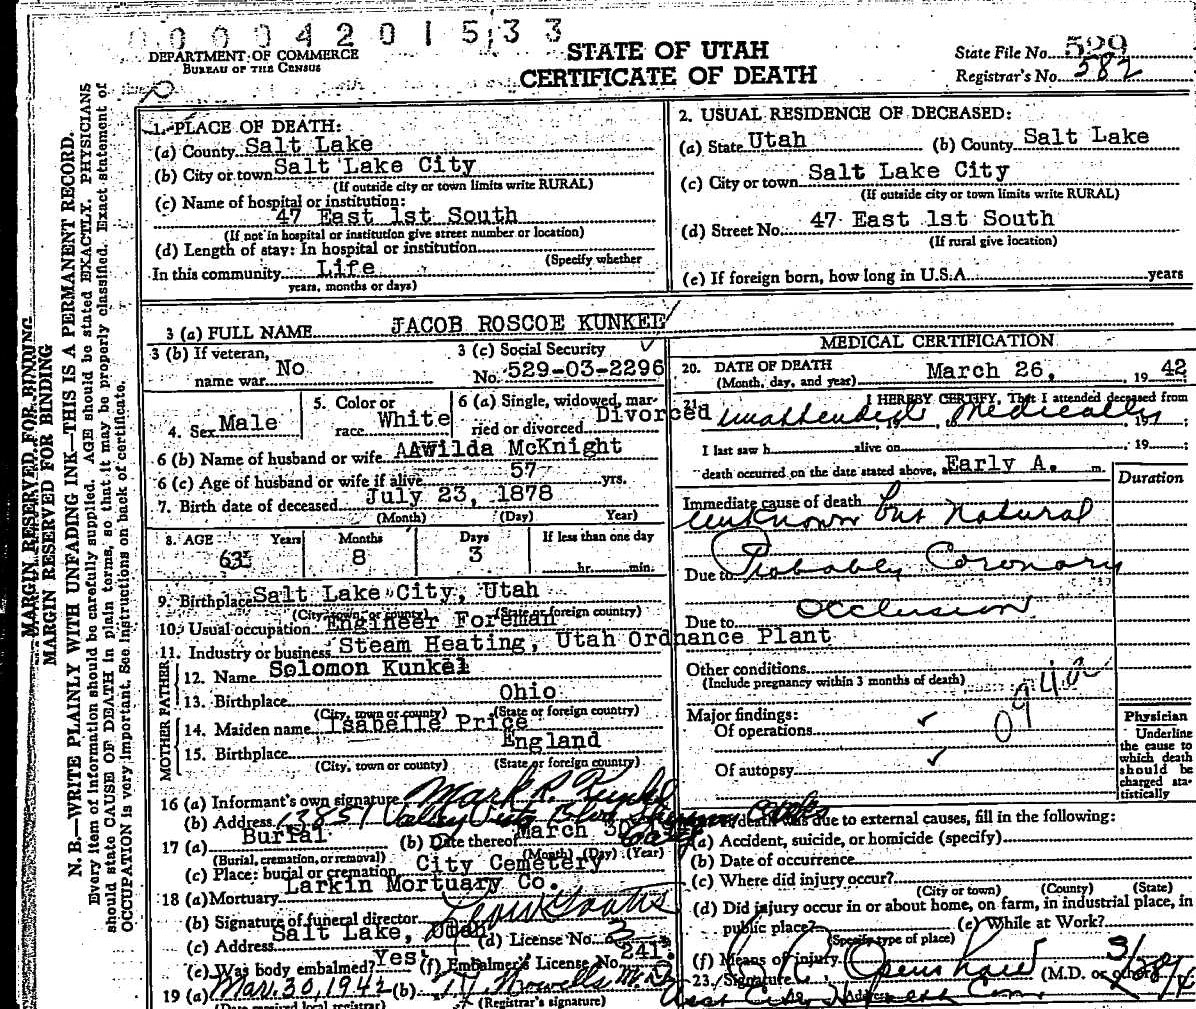 0 0 0 0 4 2 0 1 5 3 3
DEPARTMENT OF COMMERCE
BUREAU OF THE CENSUS
STATE OF UTAH
CERTIFICATE OF DEATH
State File No. 529
Registrar's No. 582
MARGIN RESERVED FOR BINDING
MARGIN RESERVED FOR BINDING
N. B.—WRITE PLAINLY WITH UNFADING INK—THIS IS A PERMANENT RECORD.
Every item of information should be carefully supplied. AGE should be stated EXACTLY. PHYSICIANS
should state CAUSE OF DEATH in plain terms, so that it may be properly classified. Exact statement of
OCCUPATION is very important. See instructions on back of certificate.
1. PLACE OF DEATH:
(a) County Salt Lake
(b) City or town Salt Lake City
(If outside city or town limits write RURAL)
(c) Name of hospital or institution:
47 East 1st South
(If not in hospital or institution give street number or location)
(d) Length of stay: In hospital or institution
(Specify whether
In this community Life
years, months or days)
2. USUAL RESIDENCE OF DECEASED:
(a) State Utah (b) County Salt Lake
(c) City or town Salt Lake City
(If outside city or town limits write RURAL)
(d) Street No. 47 East 1st South
(If rural give location)
(e) If foreign born, how long in U.S.A. years
3 (a) FULL NAME JACOB ROSCOE KUNKEL
3 (b) If veteran,
name war No
3 (c) Social Security
No. 529-03-2296
4. Sex Male
5. Color or
race White
6 (a) Single, widowed, mar-
ried or divorced Divorced
6 (b) Name of husband or wife AAWilda McKnight
6 (c) Age of husband or wife if alive 57 yrs.
7. Birth date of deceased July 23, 1878
(Month) (Day) Year)
8. AGE Years Months Days If less than one day
63 8 3 hr. min.
9. Birthplace Salt Lake City, Utah
(City, town, or county) (State or foreign country)
10. Usual occupation Engineer Foreman
11. Industry or business Steam Heating, Utah Ordnance Plant
FATHER
12. Name Solomon Kunkel
13. Birthplace Ohio
(City, town or county) (State or foreign country)
MOTHER
14. Maiden name Isabelle Price
15. Birthplace England
(City, town or county) (State or foreign country)
16 (a) Informant's own signature Mark R. Kunkel
(b) Address 13851 Valley Blvd
17 (a) Burial (b) Date thereof March 30
(Burial, cremation, or removal) (Month) (Day) (Year)
(c) Place: burial or cremation City Cemetery
18 (a) Mortuary Larkin Mortuary Co.
(b) Signature of funeral director
(c) Address Salt Lake, Utah (d) License No. 3
(e) Was body embalmed? Yes (f) Embalmer's License No. 241
19 (a) Mar. 30, 1942 (b)
(Date received local registrar) (Registrar's signature)
MEDICAL CERTIFICATION
20. DATE OF DEATH
(Month, day, and year) March 26, 19 42
21. I HEREBY CERTIFY, That I attended deceased from
unattended Medically, 19 to 19 ;
I last saw h alive on 19 ;
death occurred on the date stated above, at Early A. m.
Duration
Immediate cause of death
Unknown but Natural
Due to Probably Coronary
Due to Occlusion
Other conditions
(Include pregnancy within 3 months of death)
094a
Major findings:
Of operations ✓
Of autopsy ✓
Physician
Underline
the cause to
which death
should be
charged sta-
tistically
If death was due to external causes, fill in the following:
(a) Accident, suicide, or homicide (specify)
(b) Date of occurrence
(c) Where did injury occur?
(City or town) (County) (State)
(d) Did injury occur in or about home, on farm, in industrial place, in
public place? (e) While at Work?
(Specify type of place)
(f) Means of injury
23. Signature Openshaw (M.D. or other)
Address